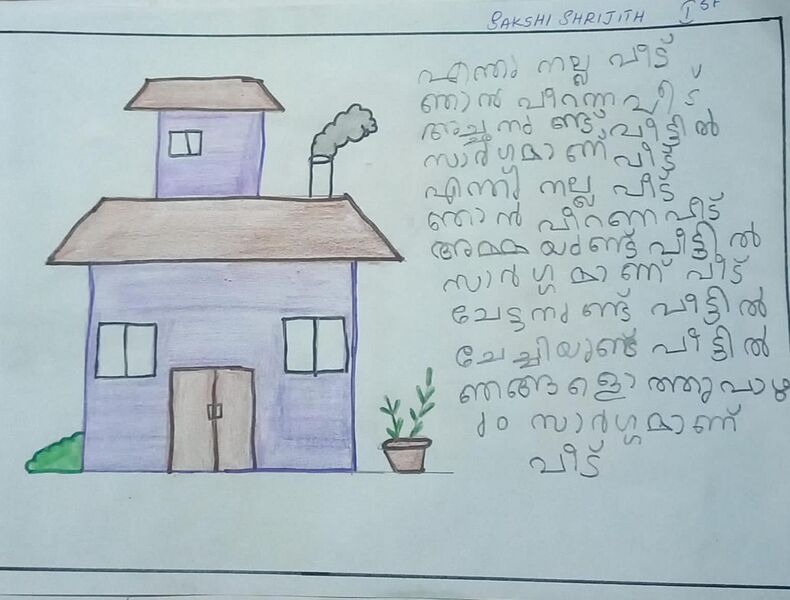 SAKSHI SHRIJITH I ST
എന്തു നല്ല വീട്
ഞാൻ പിറന്ന വീട്
അച്ഛനുണ്ട് വീട്ടിൽ
സ്വർഗ്ഗമാണ് വീട്
എന്തു നല്ല വീട്
ഞാൻ പിറണ വീട്
അമ്മയുണ്ട് വീട്ടിൽ
സ്വർഗ്ഗമാണ് വീട്
ചേട്ടനുണ്ട് വീട്ടിൽ
ചേച്ചിയുണ്ട് വീട്ടിൽ
ഞങ്ങളൊത്തുവാഴു
ഠ സ്വർഗ്ഗമാണ്
വീട്